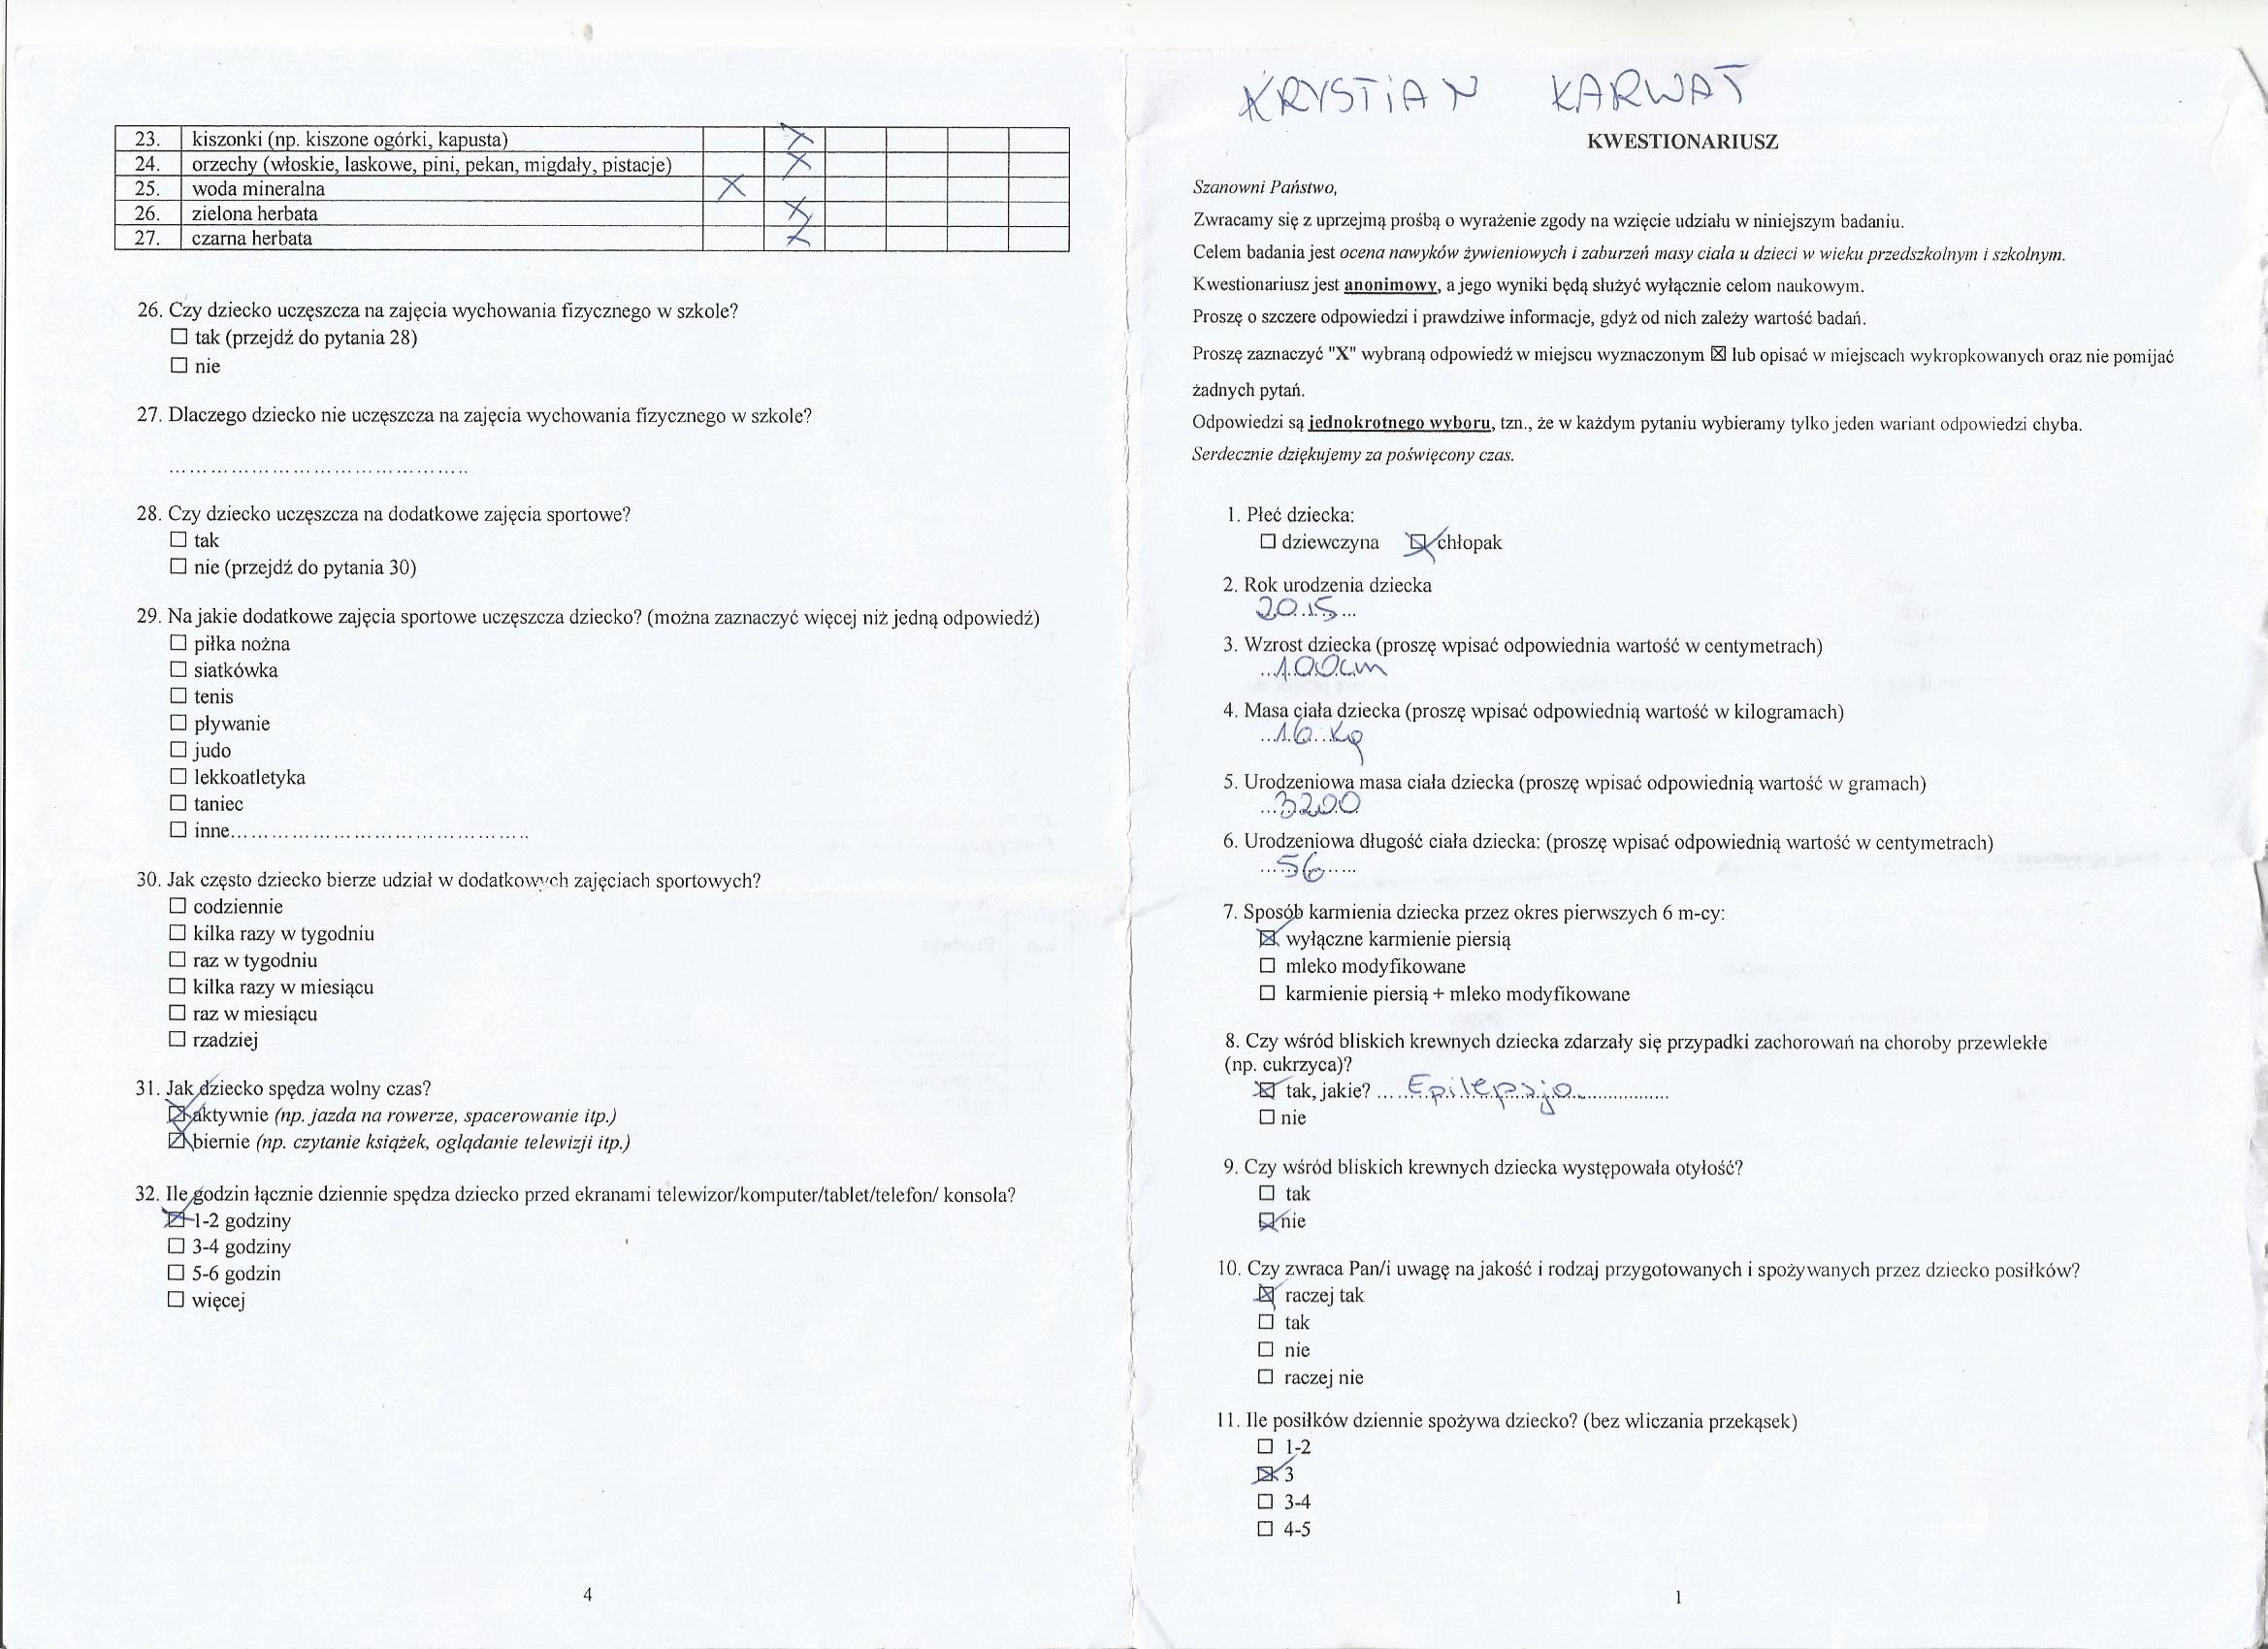 23. kiszonki (np. kiszone ogórki, kapusta) X
24. orzechy (włoskie, laskowe, pini, pekan, migdały, pistacje) X
25. woda mineralna X
26. zielona herbata X
27. czarna herbata X
26. Czy dziecko uczęszcza na zajęcia wychowania fizycznego w szkole?
☐ tak (przejdź do pytania 28)
☐ nie
27. Dlaczego dziecko nie uczęszcza na zajęcia wychowania fizycznego w szkole?
.............................................
28. Czy dziecko uczęszcza na dodatkowe zajęcia sportowe?
☐ tak
☐ nie (przejdź do pytania 30)
29. Na jakie dodatkowe zajęcia sportowe uczęszcza dziecko? (można zaznaczyć więcej niż jedną odpowiedź)
☐ piłka nożna
☐ siatkówka
☐ tenis
☐ pływanie
☐ judo
☐ lekkoatletyka
☐ taniec
☐ inne.............................................
30. Jak często dziecko bierze udział w dodatkowych zajęciach sportowych?
☐ codziennie
☐ kilka razy w tygodniu
☐ raz w tygodniu
☐ kilka razy w miesiącu
☐ raz w miesiącu
☐ rzadziej
31. Jak dziecko spędza wolny czas?
☒ aktywnie (np. jazda na rowerze, spacerowanie itp.)
☒ biernie (np. czytanie książek, oglądanie telewizji itp.)
32. Ile godzin łącznie dziennie spędza dziecko przed ekranami telewizor/komputer/tablet/telefon/ konsola?
☒ 1-2 godziny
☐ 3-4 godziny
☐ 5-6 godzin
☐ więcej
4
KRYSTIAN KARWAT
KWESTIONARIUSZ
Szanowni Państwo,
Zwracamy się z uprzejmą prośbą o wyrażenie zgody na wzięcie udziału w niniejszym badaniu.
Celem badania jest ocena nawyków żywieniowych i zaburzeń masy ciała u dzieci w wieku przedszkolnym i szkolnym.
Kwestionariusz jest anonimowy, a jego wyniki będą służyć wyłącznie celom naukowym.
Proszę o szczere odpowiedzi i prawdziwe informacje, gdyż od nich zależy wartość badań.
Proszę zaznaczyć "X" wybraną odpowiedź w miejscu wyznaczonym ☒ lub opisać w miejscach wykropkowanych oraz nie pomijać
żadnych pytań.
Odpowiedzi są jednokrotnego wyboru, tzn., że w każdym pytaniu wybieramy tylko jeden wariant odpowiedzi chyba.
Serdecznie dziękujemy za poświęcony czas.
1. Płeć dziecka:
☐ dziewczyna ☒ chłopak
2. Rok urodzenia dziecka
2015
3. Wzrost dziecka (proszę wpisać odpowiednia wartość w centymetrach)
100cm
4. Masa ciała dziecka (proszę wpisać odpowiednią wartość w kilogramach)
16 kg
5. Urodzeniowa masa ciała dziecka (proszę wpisać odpowiednią wartość w gramach)
3200
6. Urodzeniowa długość ciała dziecka: (proszę wpisać odpowiednią wartość w centymetrach)
56
7. Sposób karmienia dziecka przez okres pierwszych 6 m-cy:
☒ wyłączne karmienie piersią
☐ mleko modyfikowane
☐ karmienie piersią + mleko modyfikowane
8. Czy wśród bliskich krewnych dziecka zdarzały się przypadki zachorowań na choroby przewlekłe
(np. cukrzyca)?
☒ tak, jakie? Epilepsja
☐ nie
9. Czy wśród bliskich krewnych dziecka występowała otyłość?
☐ tak
☒ nie
10. Czy zwraca Pan/i uwagę na jakość i rodzaj przygotowanych i spożywanych przez dziecko posiłków?
☒ raczej tak
☐ tak
☐ nie
☐ raczej nie
11. Ile posiłków dziennie spożywa dziecko? (bez wliczania przekąsek)
☐ 1-2
☒ 3
☐ 3-4
☐ 4-5
1